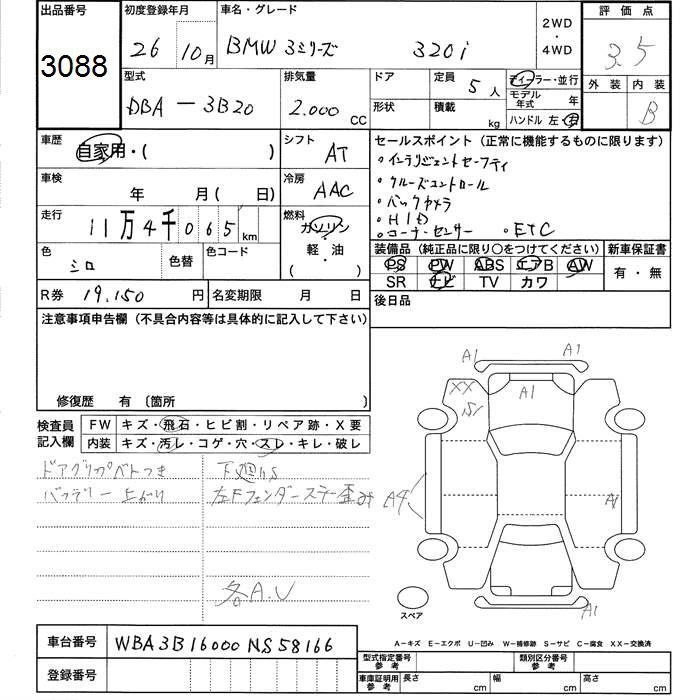 出品番号 初度登録年月 車名・グレード 2WD・4WD 評価点
3088 26 10月 BMW 3シリーズ 320i 3.5
型式 排気量 ドア 定員 5人 ディーラー・並行 外装 内装
モデル年式 年
DBA-3B20 2.000 CC 形状 積載 kg ハンドル 左・右 B
車歴 自家用・( ) シフト AT セールスポイント (正常に機能するものに限ります)
車検 年 月( 日) 冷房 AAC
・インテリジェントセーフティ
・クルーズコントロール
・バックカメラ
・HID
・コーナーセンサー ・ETC
走行 11万4千065km 燃料 ガソリン・軽油 ( )
色 シロ 色替 色コード
装備品 (純正品に限り○をつけてください) 新車保証書
PS PW ABS エアB AW 有・無
SR ナビ TV カワ
R券 19.150円 名変期限 月 日 後日品
注意事項申告欄 (不具合内容等は具体的に記入して下さい)
修復歴 有 〔箇所 〕
検査員記入欄 FW キズ・飛石・ヒビ割・リペア跡・X要
内装 キズ・汚レ・コゲ・穴・スレ・キレ・破レ
ドアグリップベトつき 下廻りS
バッテリー上がり 左Fフェンダーステー歪み
各A.U
A1 A1
XX A1
A4 A1
A1
スペア
車台番号 WBA3B16000NS58166
登録番号
A-キズ E-エクボ U-凹み W-補修跡 S-サビ C-腐食 XX-交換済
型式指定番号 参考 類別区分番号 参考
車庫証明用 参考 長さ cm 幅 cm 高さ cm